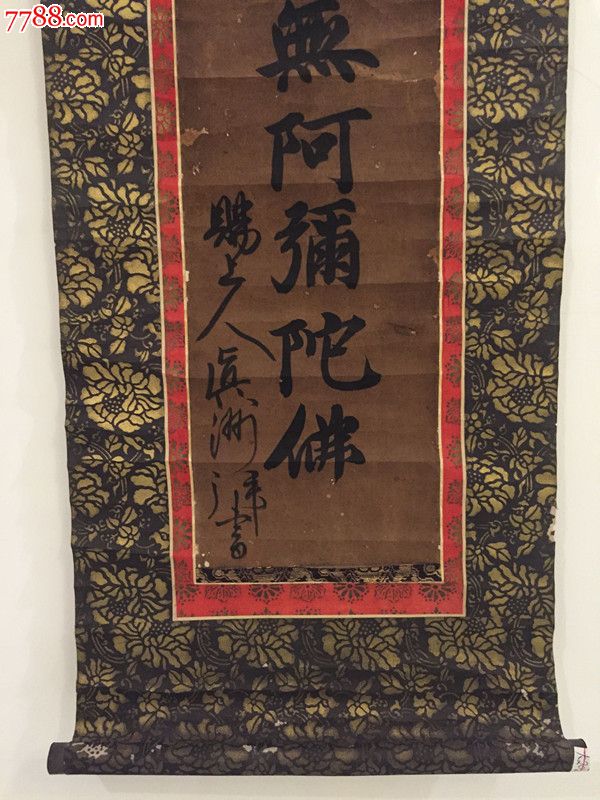 7788.com
無阿彌陀佛
賜上人真洲拜書